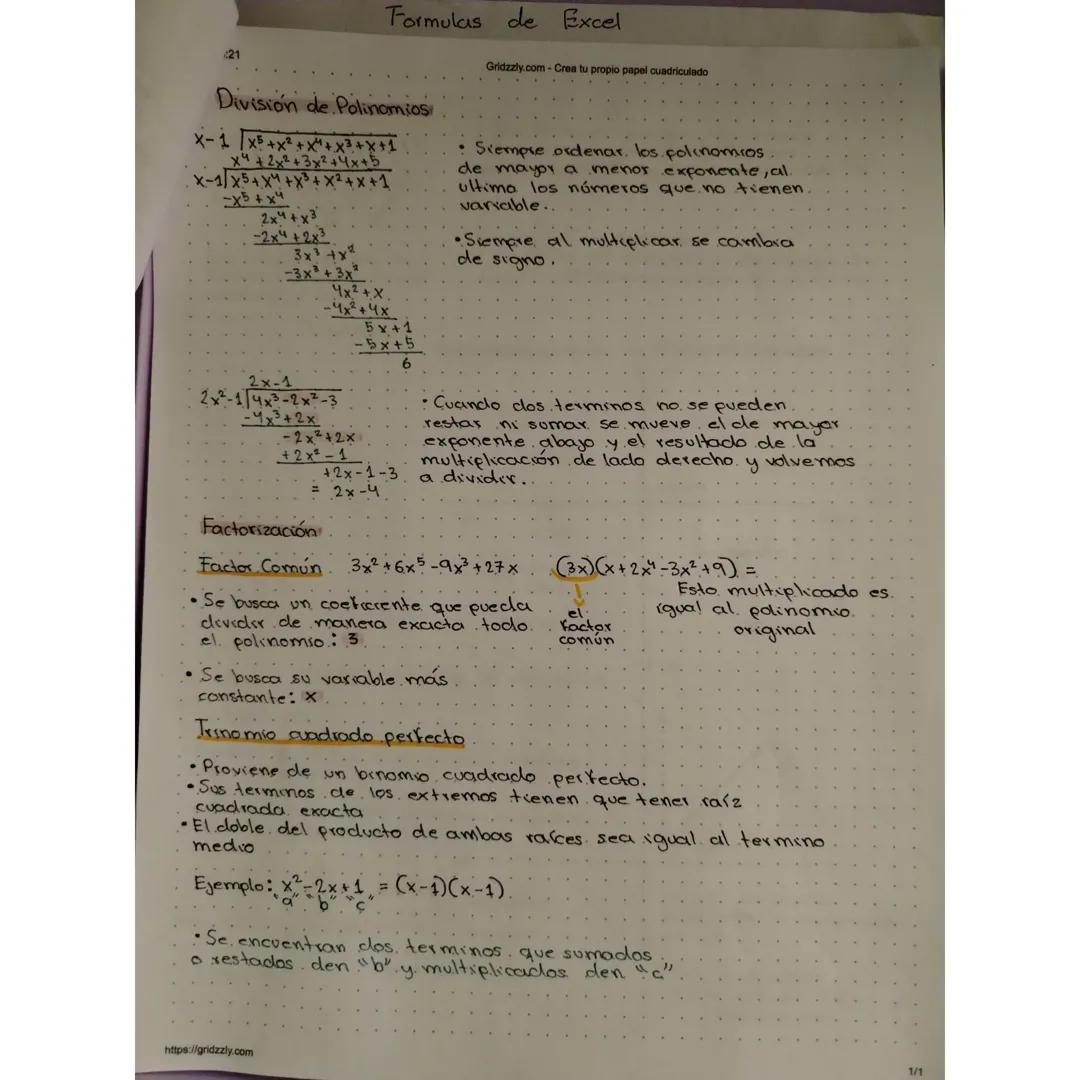 Formulas de Excel
:21
Gridzzly.com - Crea tu propio papel cuadriculado
División de Polinomios
x-1 √x⁵+x²+x⁴+x³+x+1
x⁴+2x²+3x²+4x+5
x-1√x⁵+x⁴+x³+x²+x+1
-x⁵+x⁴
2x⁴+x³
-2x⁴+2x³
3x³+x²
-3x³+3x²
4x²+x
-4x²+4x
5x+1
-5x+5
6
• Siempre ordenar los polinomios
de mayor a menor exponente, al
ultimo los números que no tienen
variable.
• Siempre al multiplicar se cambia
de signo.
2x-1
2x²-1√4x³-2x²-3
-4x³+2x
-2x²+2x
+2x²-1
+2x-1-3
= 2x-4
• Cuando dos terminos no se pueden
restar ni sumar se mueve el de mayor
exponente abajo y el resultado de la
multiplicación de lado derecho y volvemos
a dividir.
Factorización
Factor Común 3x²+6x⁵-9x³+27x (3x)(x+2x⁴-3x²+9) =
• Se busca un coeficiente que pueda
dividir de manera exacta todo
el polinomio: 3
el
factor
común
Esto multiplicado es
igual al polinomio
original
• Se busca su variable más
constante: x
Trinomio cuadrado perfecto
• Proviene de un binomio cuadrado perfecto.
• Sus terminos de los extremos tienen que tener raíz
cuadrada exacta
• El doble del producto de ambas raíces sea igual al termino
medio
Ejemplo: x²-2x+1 = (x-1)(x-1)
"a" "b" "c"
• Se encuentran dos terminos que sumados
o restados den "b" y multiplicados den "c"
https://gridzzly.com
1/1